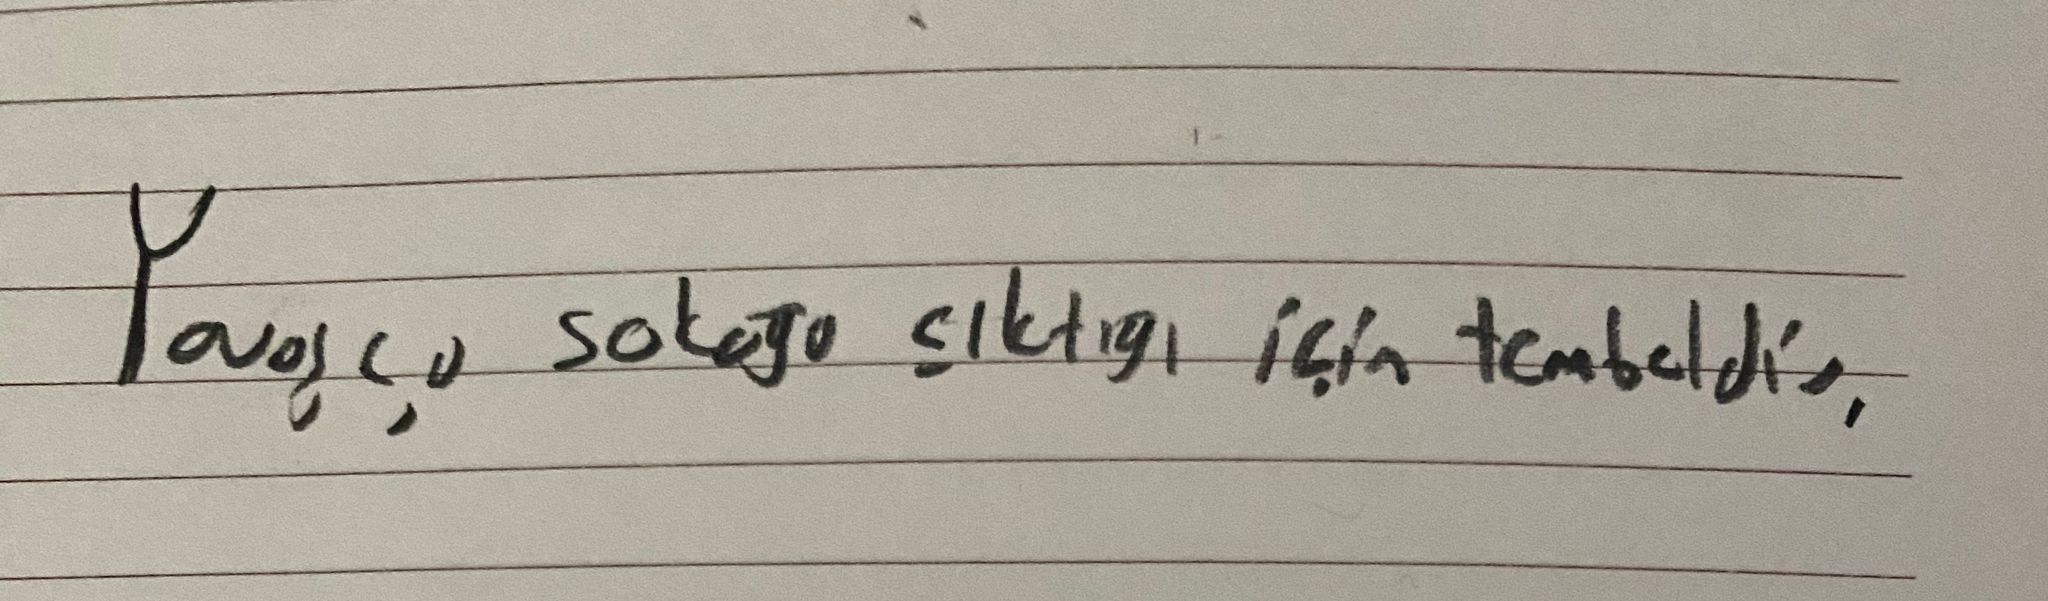 Yavaşça sokağa çıktığı için tembeldir,